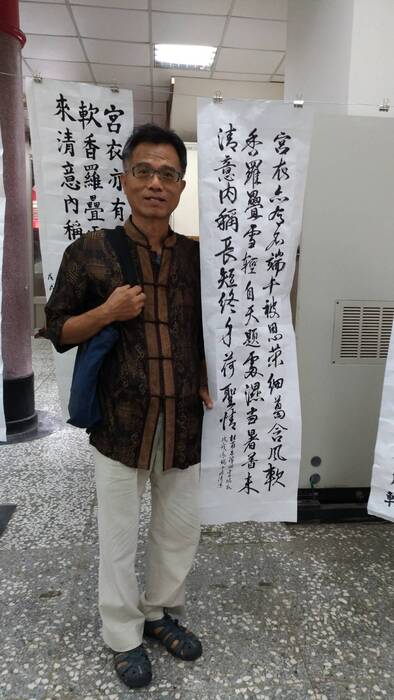 宮衣亦有名端午被恩榮細葛含風軟
香羅疊雪輕自天題處濕當暑著來
清意內稱長短終身荷聖情
宮衣亦有
軟香羅疊
來清意內稱